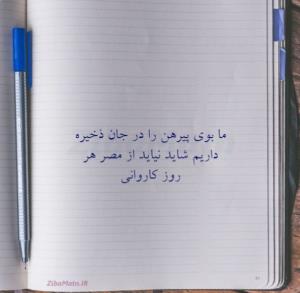 ما بوی پیرهن را در جان ذخیره
داریم شاید نیاید از مصر هر
روز کاروانی
ZibaMatn.IR